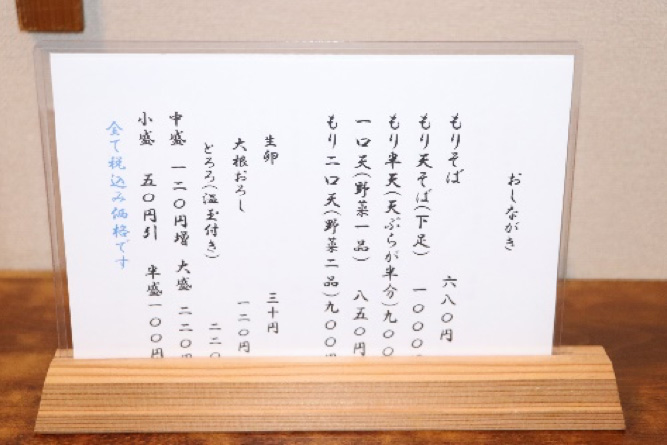 おしながき
もりそば 六八〇円
もり天そば(下足) 一〇〇〇
もり半天(天ぷらが半分)九〇〇
一口天(野菜一品) 八五〇円
もり二口天(野菜二品)九〇〇円
生卵 三十円
大根おろし 一二〇円
とろろ(温玉付き) 二二〇
中盛 一二〇円増 大盛 二二〇円
小盛 五〇円引 半盛一〇〇円
全て税込み価格です